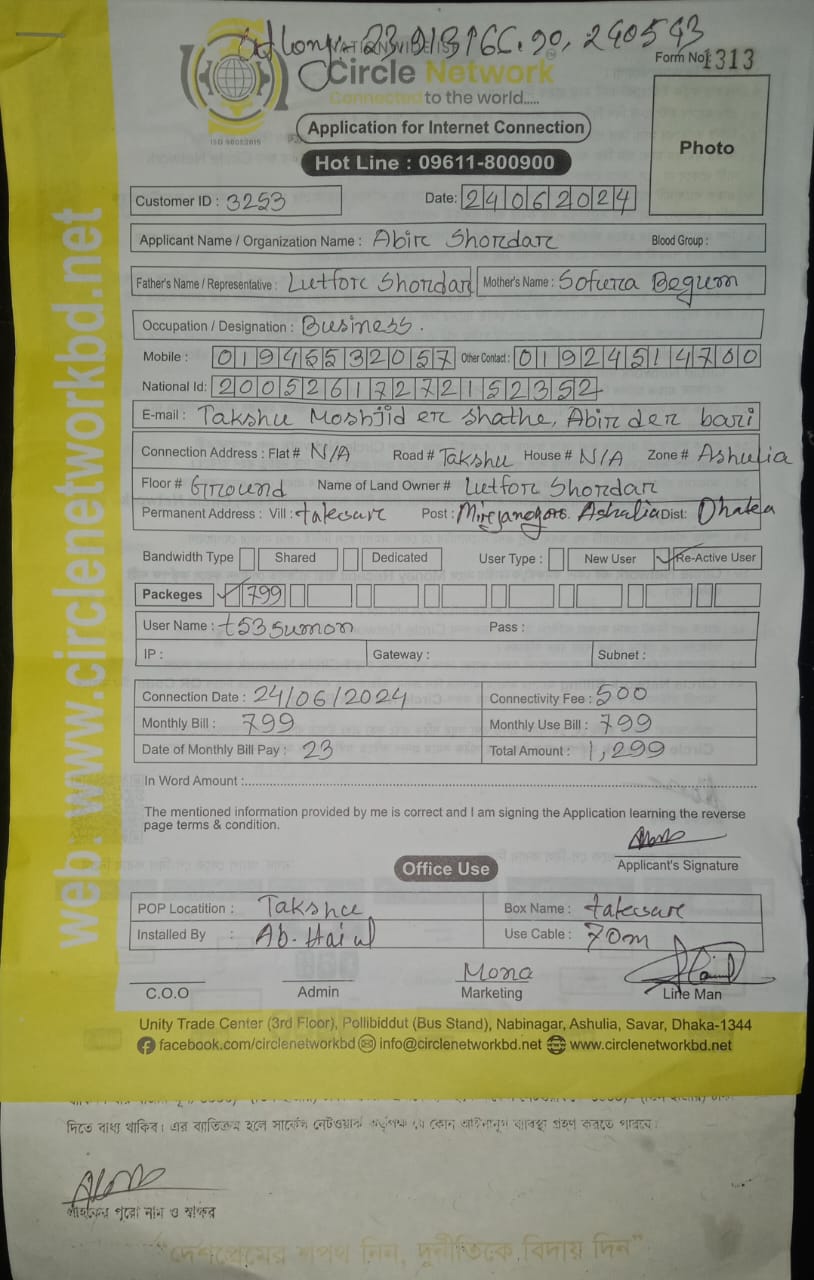 NATIONWIDE IS
Circle Network
Form No: 1313
Connected to the world.....
ISO 9001:2015
Application for Internet Connection
Photo
Hot Line : 09611-800900
Customer ID : 3253
Date: 24062024
Applicant Name / Organization Name : Abir Shordar Blood Group :
Father's Name / Representative : Lutfor Shordar Mother's Name : Sofura Begum
Occupation / Designation : Business.
Mobile : 01946532057 Other Contact : 01924514700
National Id: 20052617272152352
E-mail : Takshu Moshjid er shathe, Abir der bari
Connection Address : Flat # N/A Road # Takshu House # N/A Zone # Ashulia
Floor # Ground Name of Land Owner # Lutfor Shordar
Permanent Address : Vill : Post : Ashulia Dist: Dhaka
Bandwidth Type Shared Dedicated User Type : New User Re-Active User
Packeges 799
User Name : t53sumon Pass :
IP : Gateway : Subnet :
Connection Date : 24/06/2024 Connectivity Fee : 500
Monthly Bill : 799 Monthly Use Bill : 799
Date of Monthly Bill Pay : 23 Total Amount : 1,299
In Word Amount :
The mentioned information provided by me is correct and I am signing the Application learning the reverse
page terms & condition.
Applicant's Signature
Office Use
POP Locatition : Takshu Box Name :
Installed By : Ab. Use Cable : 70m
Mona
C.O.O Admin Marketing Line Man
Unity Trade Center (3rd Floor), Pollibiddut (Bus Stand), Nabinagar, Ashulia, Savar, Dhaka-1344
facebook.com/circlenetworkbd info@circlenetworkbd.net www.circlenetworkbd.net
web: www.circlenetworkbd.net
দিতে বাধ্য থাকিব। এর ব্যতিক্রম হলে সার্কেল নেটওয়ার্ক কর্তৃপক্ষ যে কোন আইনানুগ ব্যবস্থা গ্রহণ করতে পারবে।
গ্রাহকের পুরো নাম ও স্বাক্ষর
"দেশপ্রেমের শপথ নিন, দুর্নীতিকে বিদায় দিন"